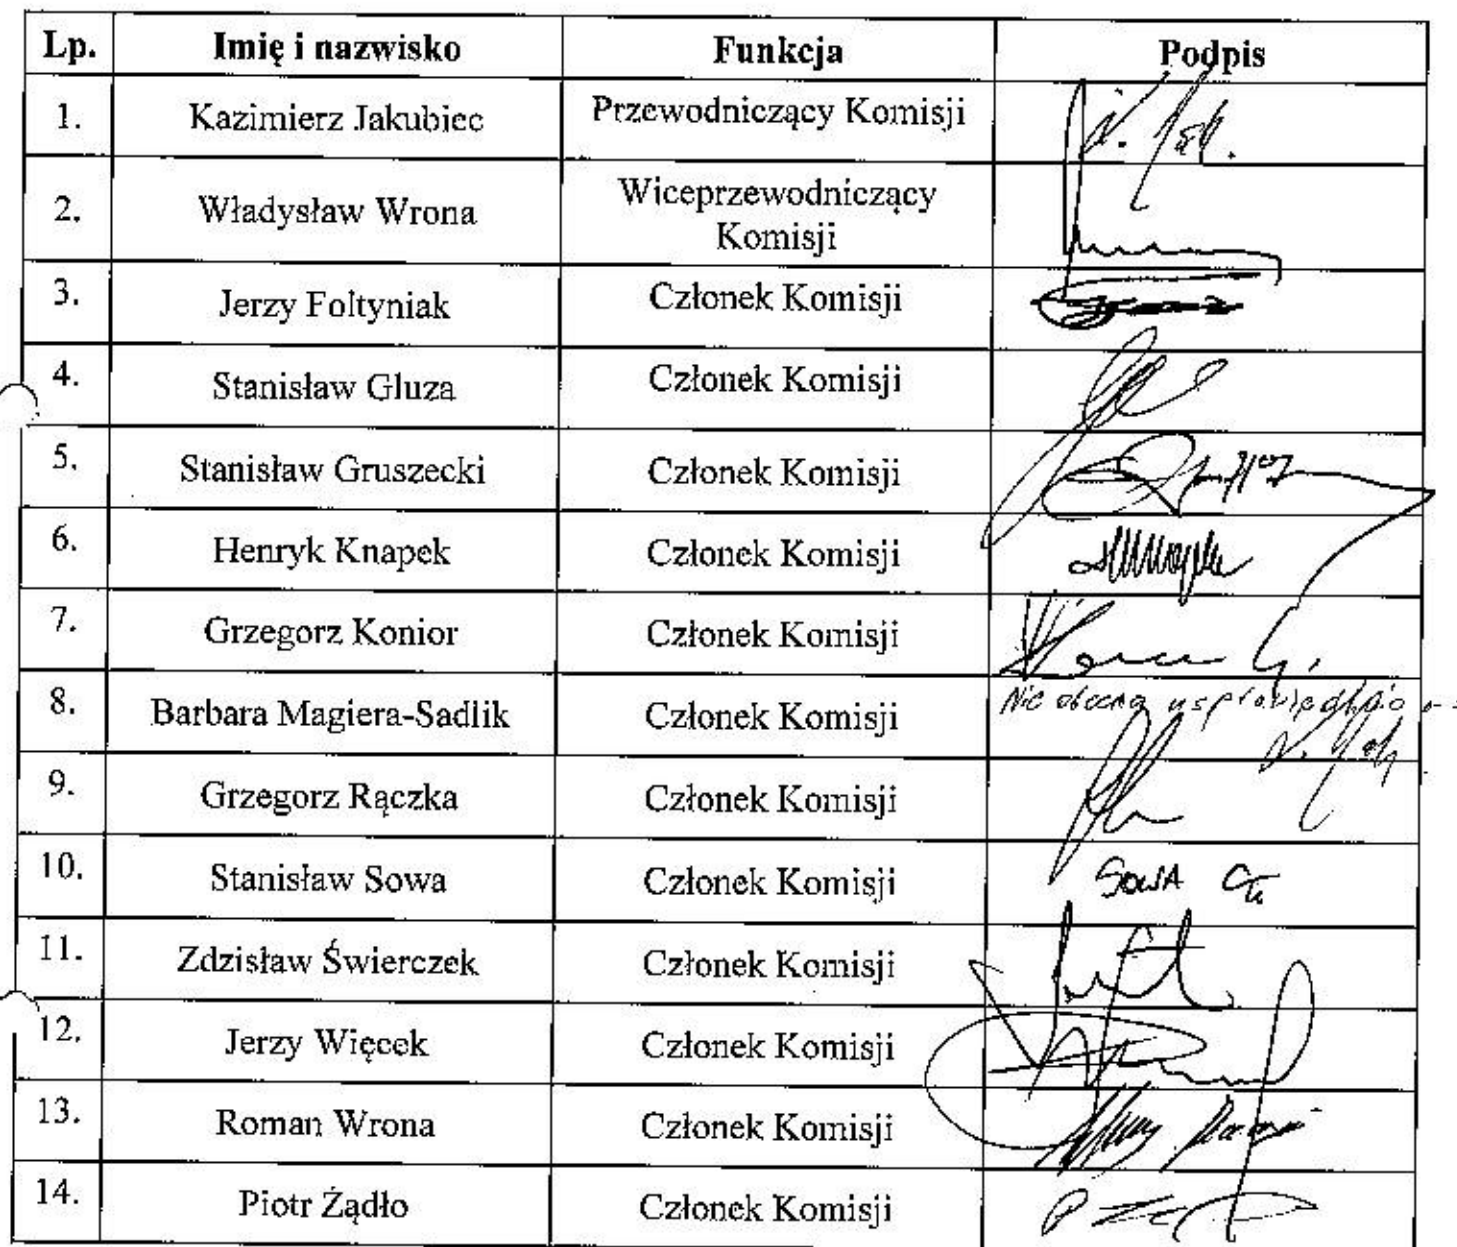 Lp. Imię i nazwisko Funkcja Podpis
1. Kazimierz Jakubiec Przewodniczący Komisji
2. Władysław Wrona Wiceprzewodniczący
Komisji
3. Jerzy Foltyniak Członek Komisji
4. Stanisław Gluza Członek Komisji
5. Stanisław Gruszecki Członek Komisji
6. Henryk Knapek Członek Komisji
7. Grzegorz Konior Członek Komisji
8. Barbara Magiera-Sadlik Członek Komisji Nie obecna
9. Grzegorz Rączka Członek Komisji
10. Stanisław Sowa Członek Komisji SOWA
11. Zdzisław Świerczek Członek Komisji
12. Jerzy Więcek Członek Komisji
13. Roman Wrona Członek Komisji
14. Piotr Żądło Członek Komisji